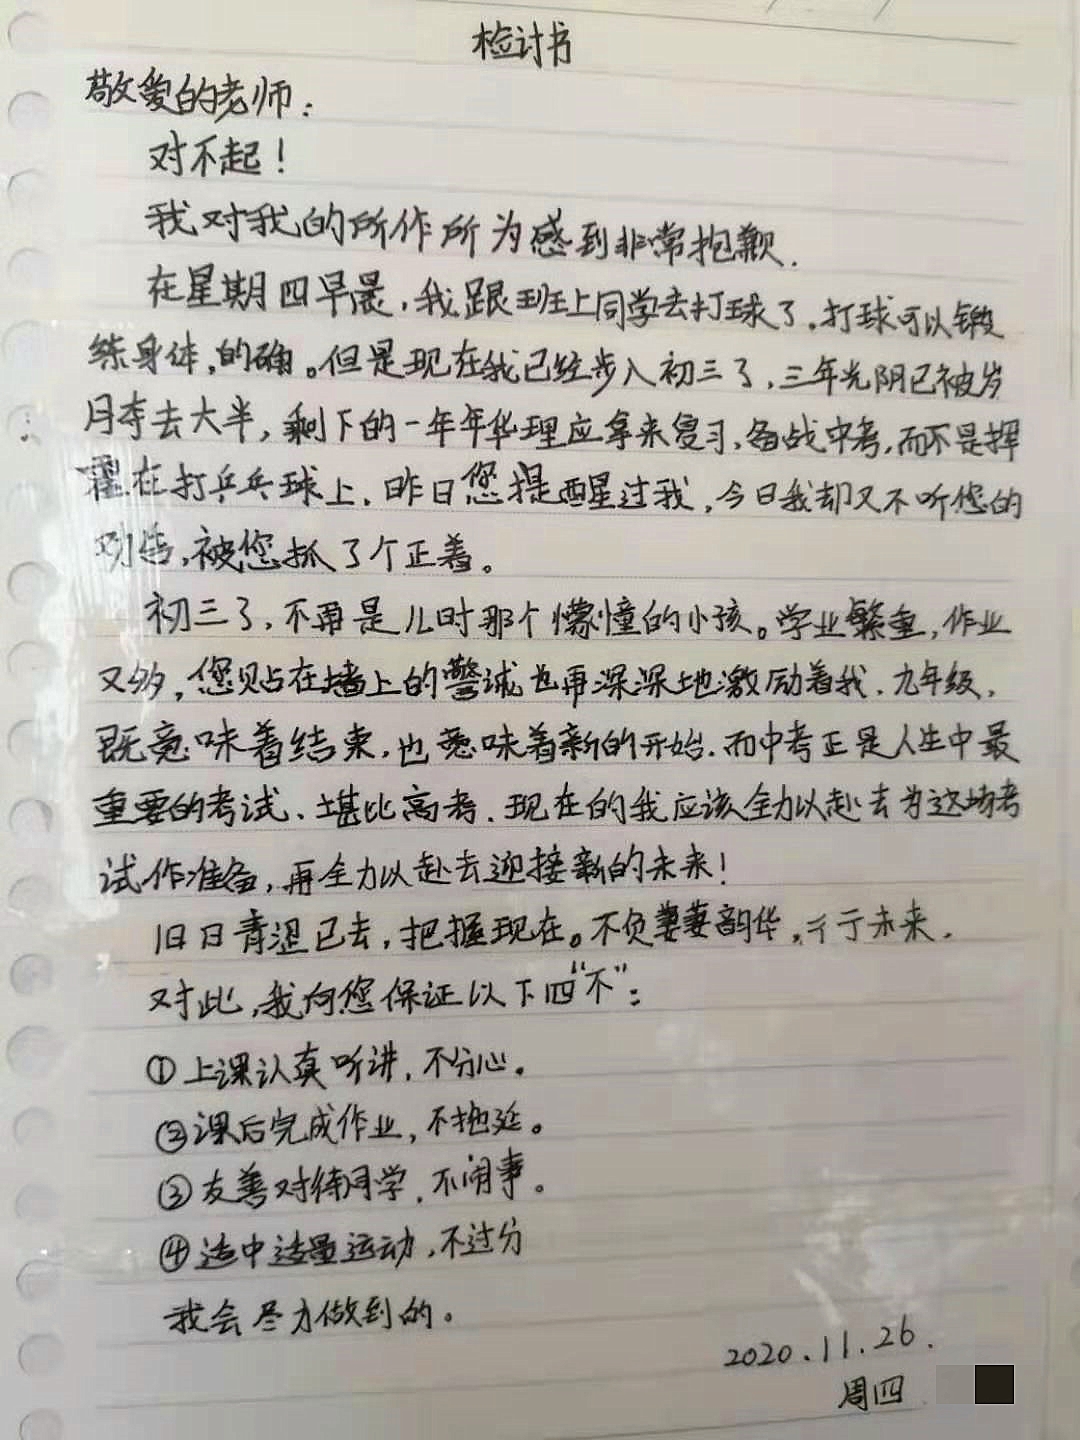 检讨书
敬爱的老师：
对不起！
我对我的所作所为感到非常抱歉.
在星期四早晨,我跟班上同学去打球了。打球可以锻
练身体,的确。但是现在我已经步入初三了,三年光阴已被岁
月夺去大半,剩下的一年年华理应拿来复习,备战中考,而不是挥
霍在打乒乓球上,昨日您提醒过我,今日我却又不听您的
劝告,被您抓了个正着。
初三了,不再是儿时那个懵憧的小孩。学业繁重,作业
又多,您贴在墙上的警诫也再深深地激励着我.九年级,
既意味着结束,也意味着新的开始.而中考正是人生中最
重要的考试、堪比高考.现在的我应该全力以赴去为这场考
试作准备,再全力以赴去迎接新的未来!
旧日青涩已去,把握现在。不负萋萋韵华,于未来.
对此,我向您保证以下四"不":
①上课认真听讲,不分心。
②课后完成作业,不拖延。
③友善对待同学,不闹事。
④适中适量运动,不过分
我会尽力做到的。
2020.11.26.
周四